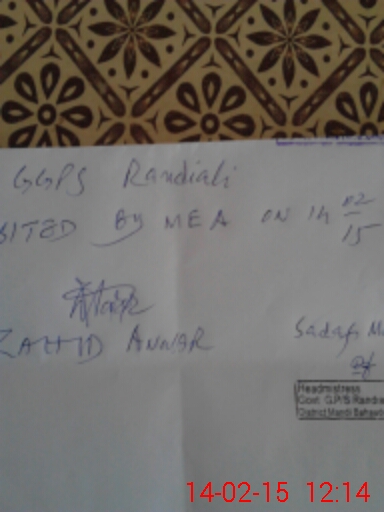 GGPS Randiali
SITED BY MEA ON 14 02/15
ZAHID ANWAR
Sadaf M
Headmistress
Govt. G.P/S Randia
District Mandi Bahaud
14-02-15 12:14